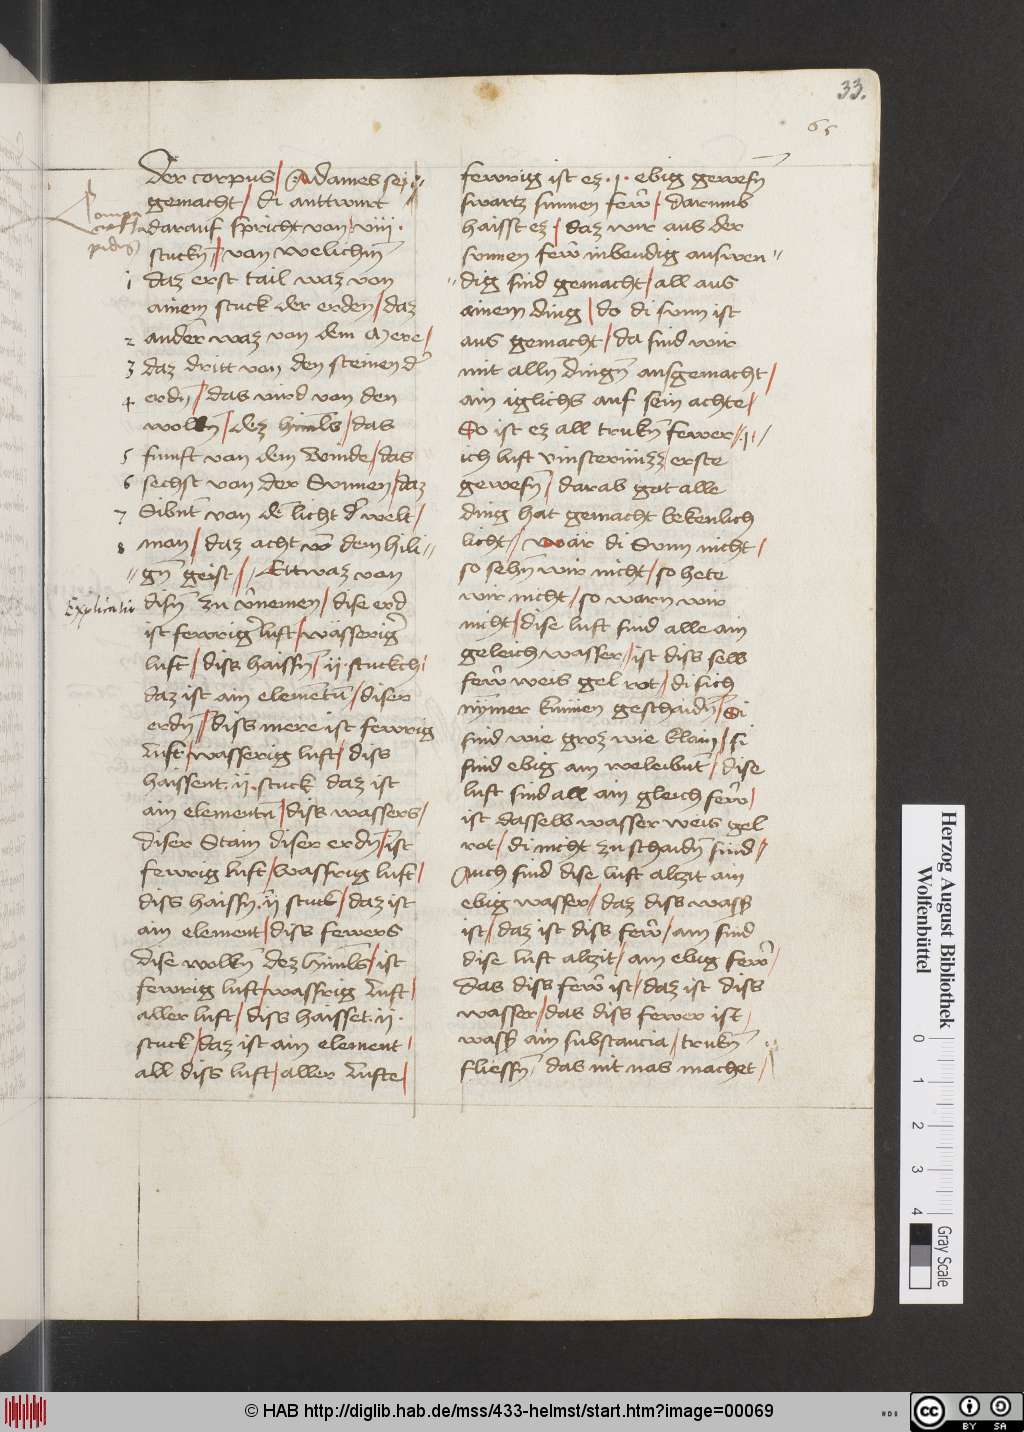 33.
65
der corpus / Adames sej
gemacht / di anttwurt
darauf spricht von viii.
stuckn̄ / von welichm̄
1 daz erst tail waz von
ainem stuck der erden / daz
2 ander waz von dem Mere /
3 daz dritt von den steinen d'
4 erdn̄ / das vird von den
wolkn̄ / dez himls / das
5 funft von dem Winde / das
6 sechst von der Sunnen / daz
7 Sibnt von dē licht d' welt /
8 man / daz acht vō dem hili
gn̄ geist / Ettwaz von
Explicatio
disn̄ zu v̂nemen / dise erd
ist fewrig' luft / wässerig'
luft / diss haissn̄ / ij. stuckch /
daz ist ain elemētū / diser
erdn̄ / diss mere ist fewrig
luft / wasserig luft / diss
haissent. ij. stuck daz ist
ain elementū / diss wassers /
diser Stain diser erdn̄ / ist
fewrig luft / wassrig luft /
diss haissn. ij stuck / daz ist
ain element / diss fewers
Dise wolkn̄ dez himls / ist
fewrig luft / wassrig luft /
aller luft / diss haisset. ij.
stuck / daz ist ain element /
all diss luft / aller lufte /
fewrig ist ez. j. ebig gewesn̄
swartz sunnen few̄r / darumb
haisst ez / daz wir aus der
sunnen few̄r inbendig auswen
dig sind gemacht / all aus
ainem ding / do di sunn ist
aus gemacht / da sind wir
mit alln dingn̄ ausgemacht /
ain iglichs auf sein achte /
So ist ez all trukn̄ fewer / j /
ich luft vinsterniizz erste
gewesn̄ / darab got alle
ding hat gemacht bekenlich
licht / wär di Sunn nicht /
so sehn̄ wir nicht / so hete
wir nicht / so warn wir
nicht / dise luft sind alle ain
geleich wasser / ist diss selb
few̄r weis gel rot / di sich
nym̄er kunnen geschaidn̄ / Si
sind wie groz wie klain / si
sind ebig ain weleibnt̄ / dise
luft sind all ain gleich few̄r /
ist dasselb wasser weis gel
rot / di nicht zu schaidn̄ sind /
Auch sind dise luft alzit ain
ebig wasser / daz diss wass'
ist / daz ist diss few̄r / ain sind
dise luft alzit / ain ebig few̄r /
Das diss few̄r ist / daz ist diss
wasser / das diss fewer ist /
wass' ain substancia / trukn̄
fliessn̄ das nit nas machet /
Herzog August Bibliothek
Wolfenbüttel
0 1 2 3 4
Gray Scale
© HAB http://diglib.hab.de/mss/433-helmst/start.htm?image=00069
HDB
cc BY SA